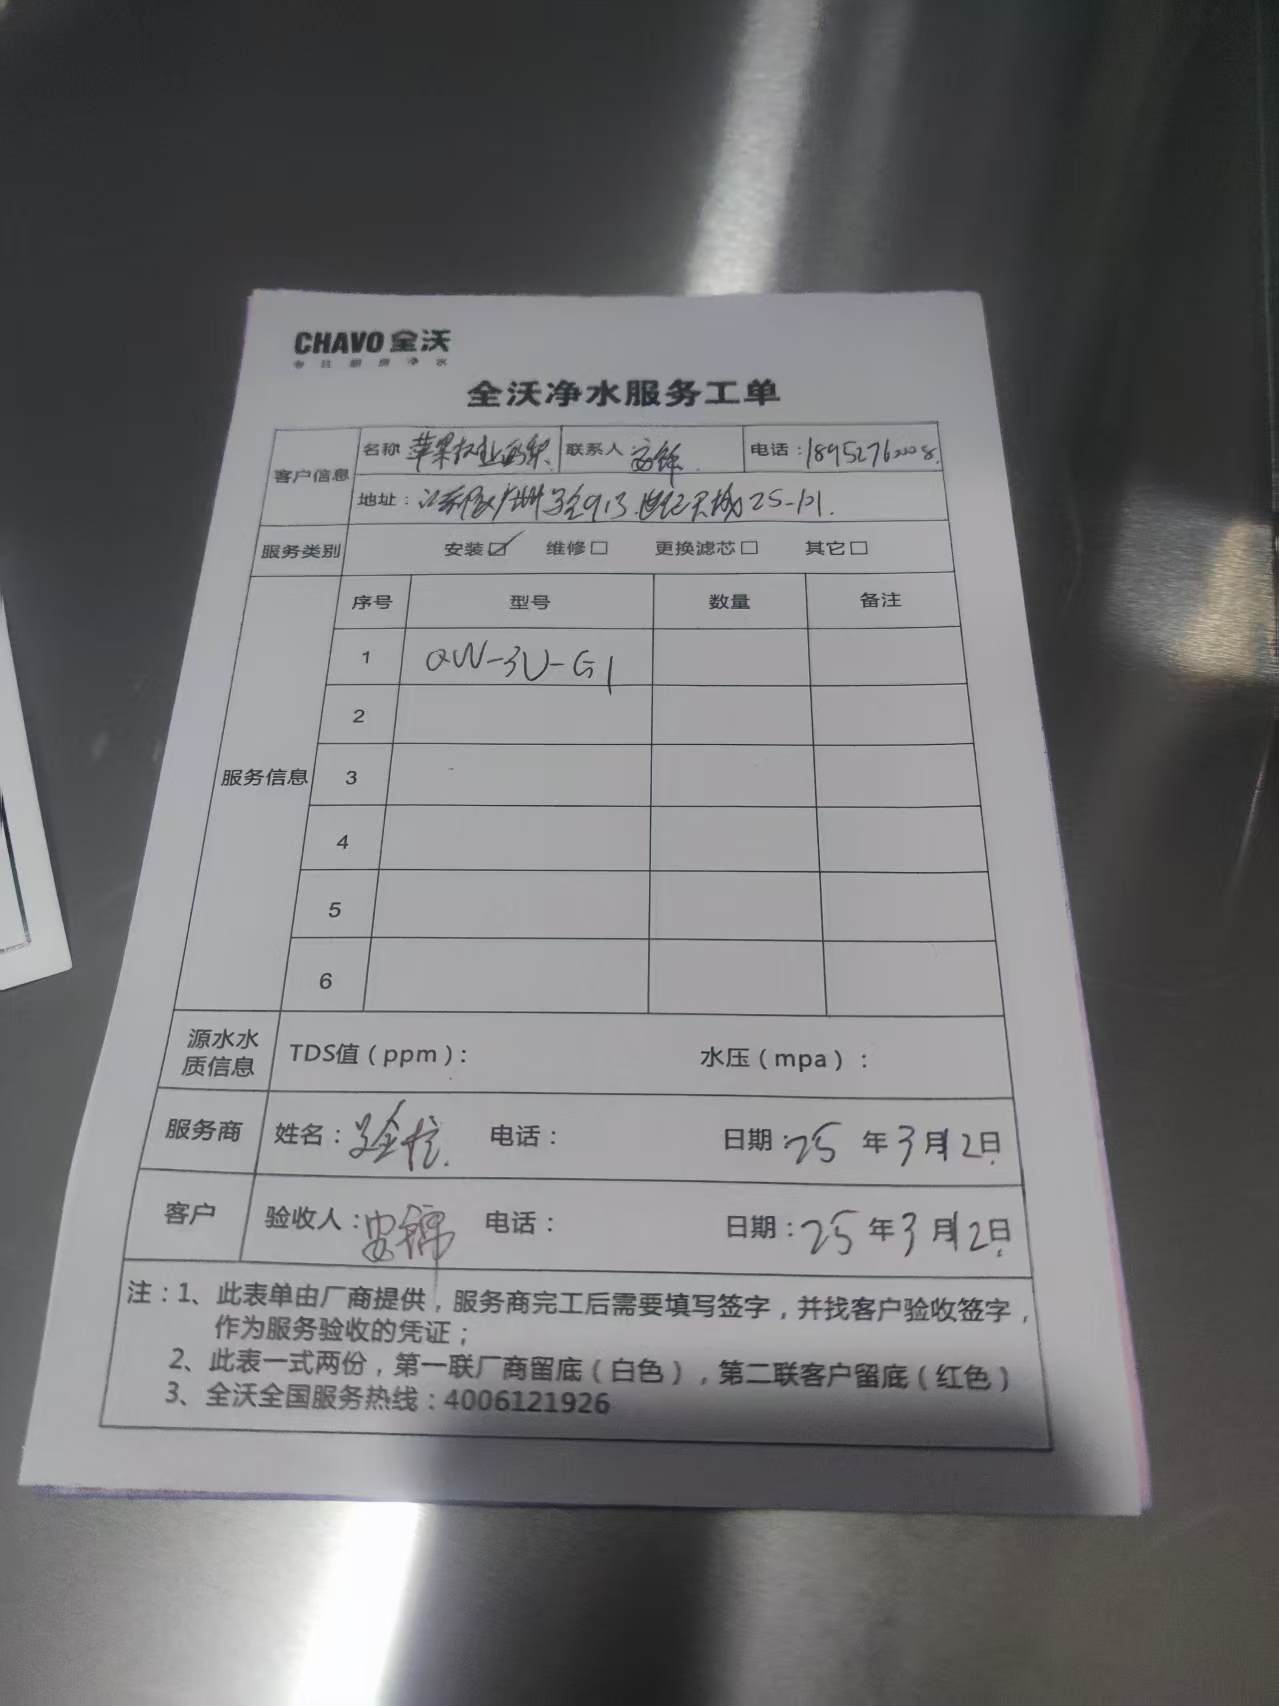 CHAVO 全沃
专注厨房净水
全沃净水服务工单
客户信息 名称 苹果 联系人 安锦 电话：18952760008
地址： 25-101
服务类别 安装☑ 维修□ 更换滤芯□ 其它□
服务信息 序号 型号 数量 备注
1 QW-3U-G1
2
3
4
5
6
源水水质信息 TDS值（ppm）： 水压（mpa）：
服务商 姓名： 电话： 日期：25年3月12日
客户 验收人：安锦 电话： 日期：25年3月12日
注：1、此表单由厂商提供，服务商完工后需要填写签字，并找客户验收签字，
作为服务验收的凭证；
2、此表一式两份，第一联厂商留底（白色），第二联客户留底（红色）
3、全沃全国服务热线：4006121926